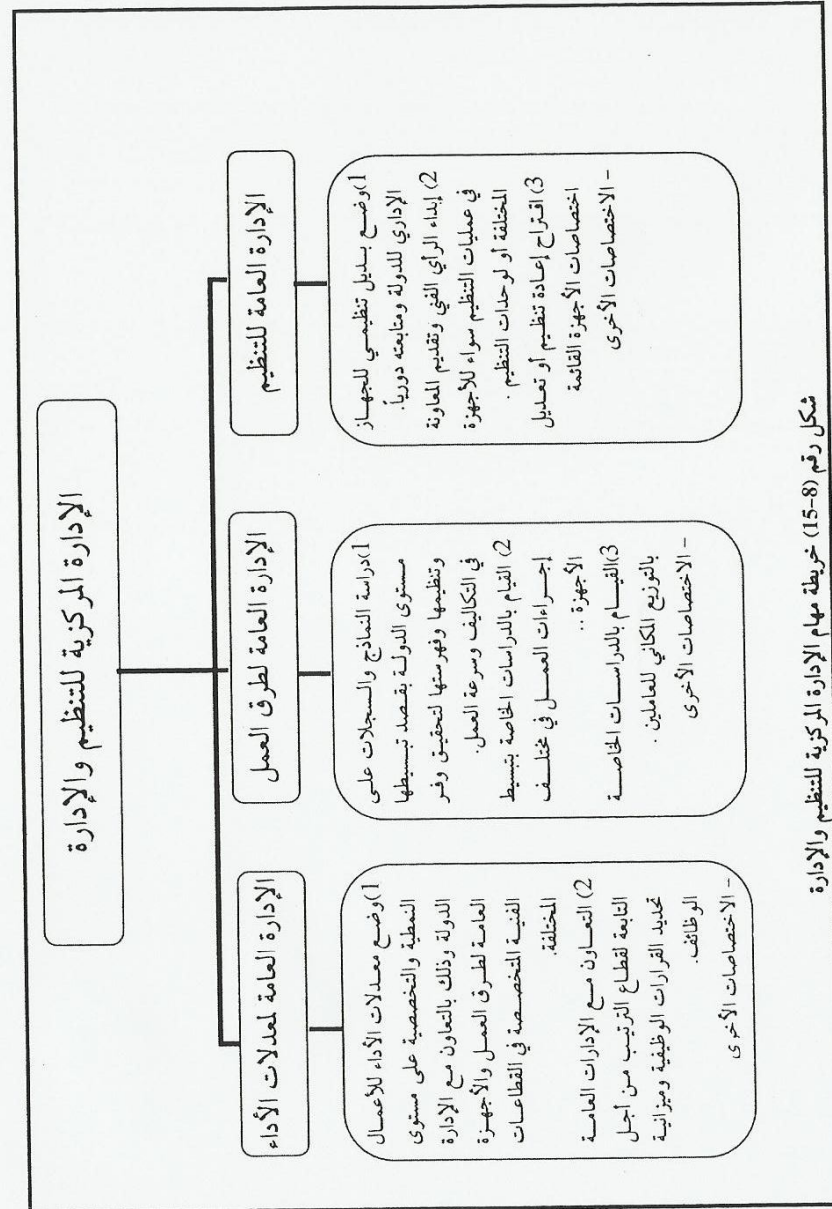 الإدارة المركزية للتنظيم والإدارة
الإدارة العامة للتنظيم
1)وضع بديل تنظيمي للجهاز
الإداري للدولة ومتابعته دورياً.
2) إبداء الرأي الفني وتقديم المعاونة
في عمليات التنظيم سواء للأجهزة
المختلفة أو لوحدات التنظيم .
3) اقتراح إعادة تنظيم أو تعديل
اختصاصات الأجهزة القائمة
- الاختصاصات الأخرى
الإدارة العامة لطرق العمل
1)دراسة النماذج والسجلات على
مستوى الدولة بقصد تبسيطها
وتنظيمها وفهرستها لتحقيق وفر
في التكاليف وسرعة العمل.
2) القيام بالدراسات الخاصة بتبسيط
إجراءات العمل في مختلف
الأجهزة ..
3)القيام بالدراسات الخاصة
بالتوزيع المكاني للعاملين .
- الاختصاصات الأخرى
الإدارة العامة لمعدلات الأداء
1)وضع معدلات الأداء للأعمال
النمطية والتخصصية على مستوى
الدولة وذلك بالتعاون مع الإدارة
العامة لطرق العمل والأجهزة
الفنية المتخصصة في القطاعات
المختلفة.
2) التعاون مع الإدارات العامة
التابعة لقطاع الترتيب من أجل
تحديد القرارات الوظيفية وميزانية
الوظائف.
- الاختصاصات الأخرى
شكل رقم (8-15) خريطة مهام الإدارة المركزية للتنظيم والإدارة